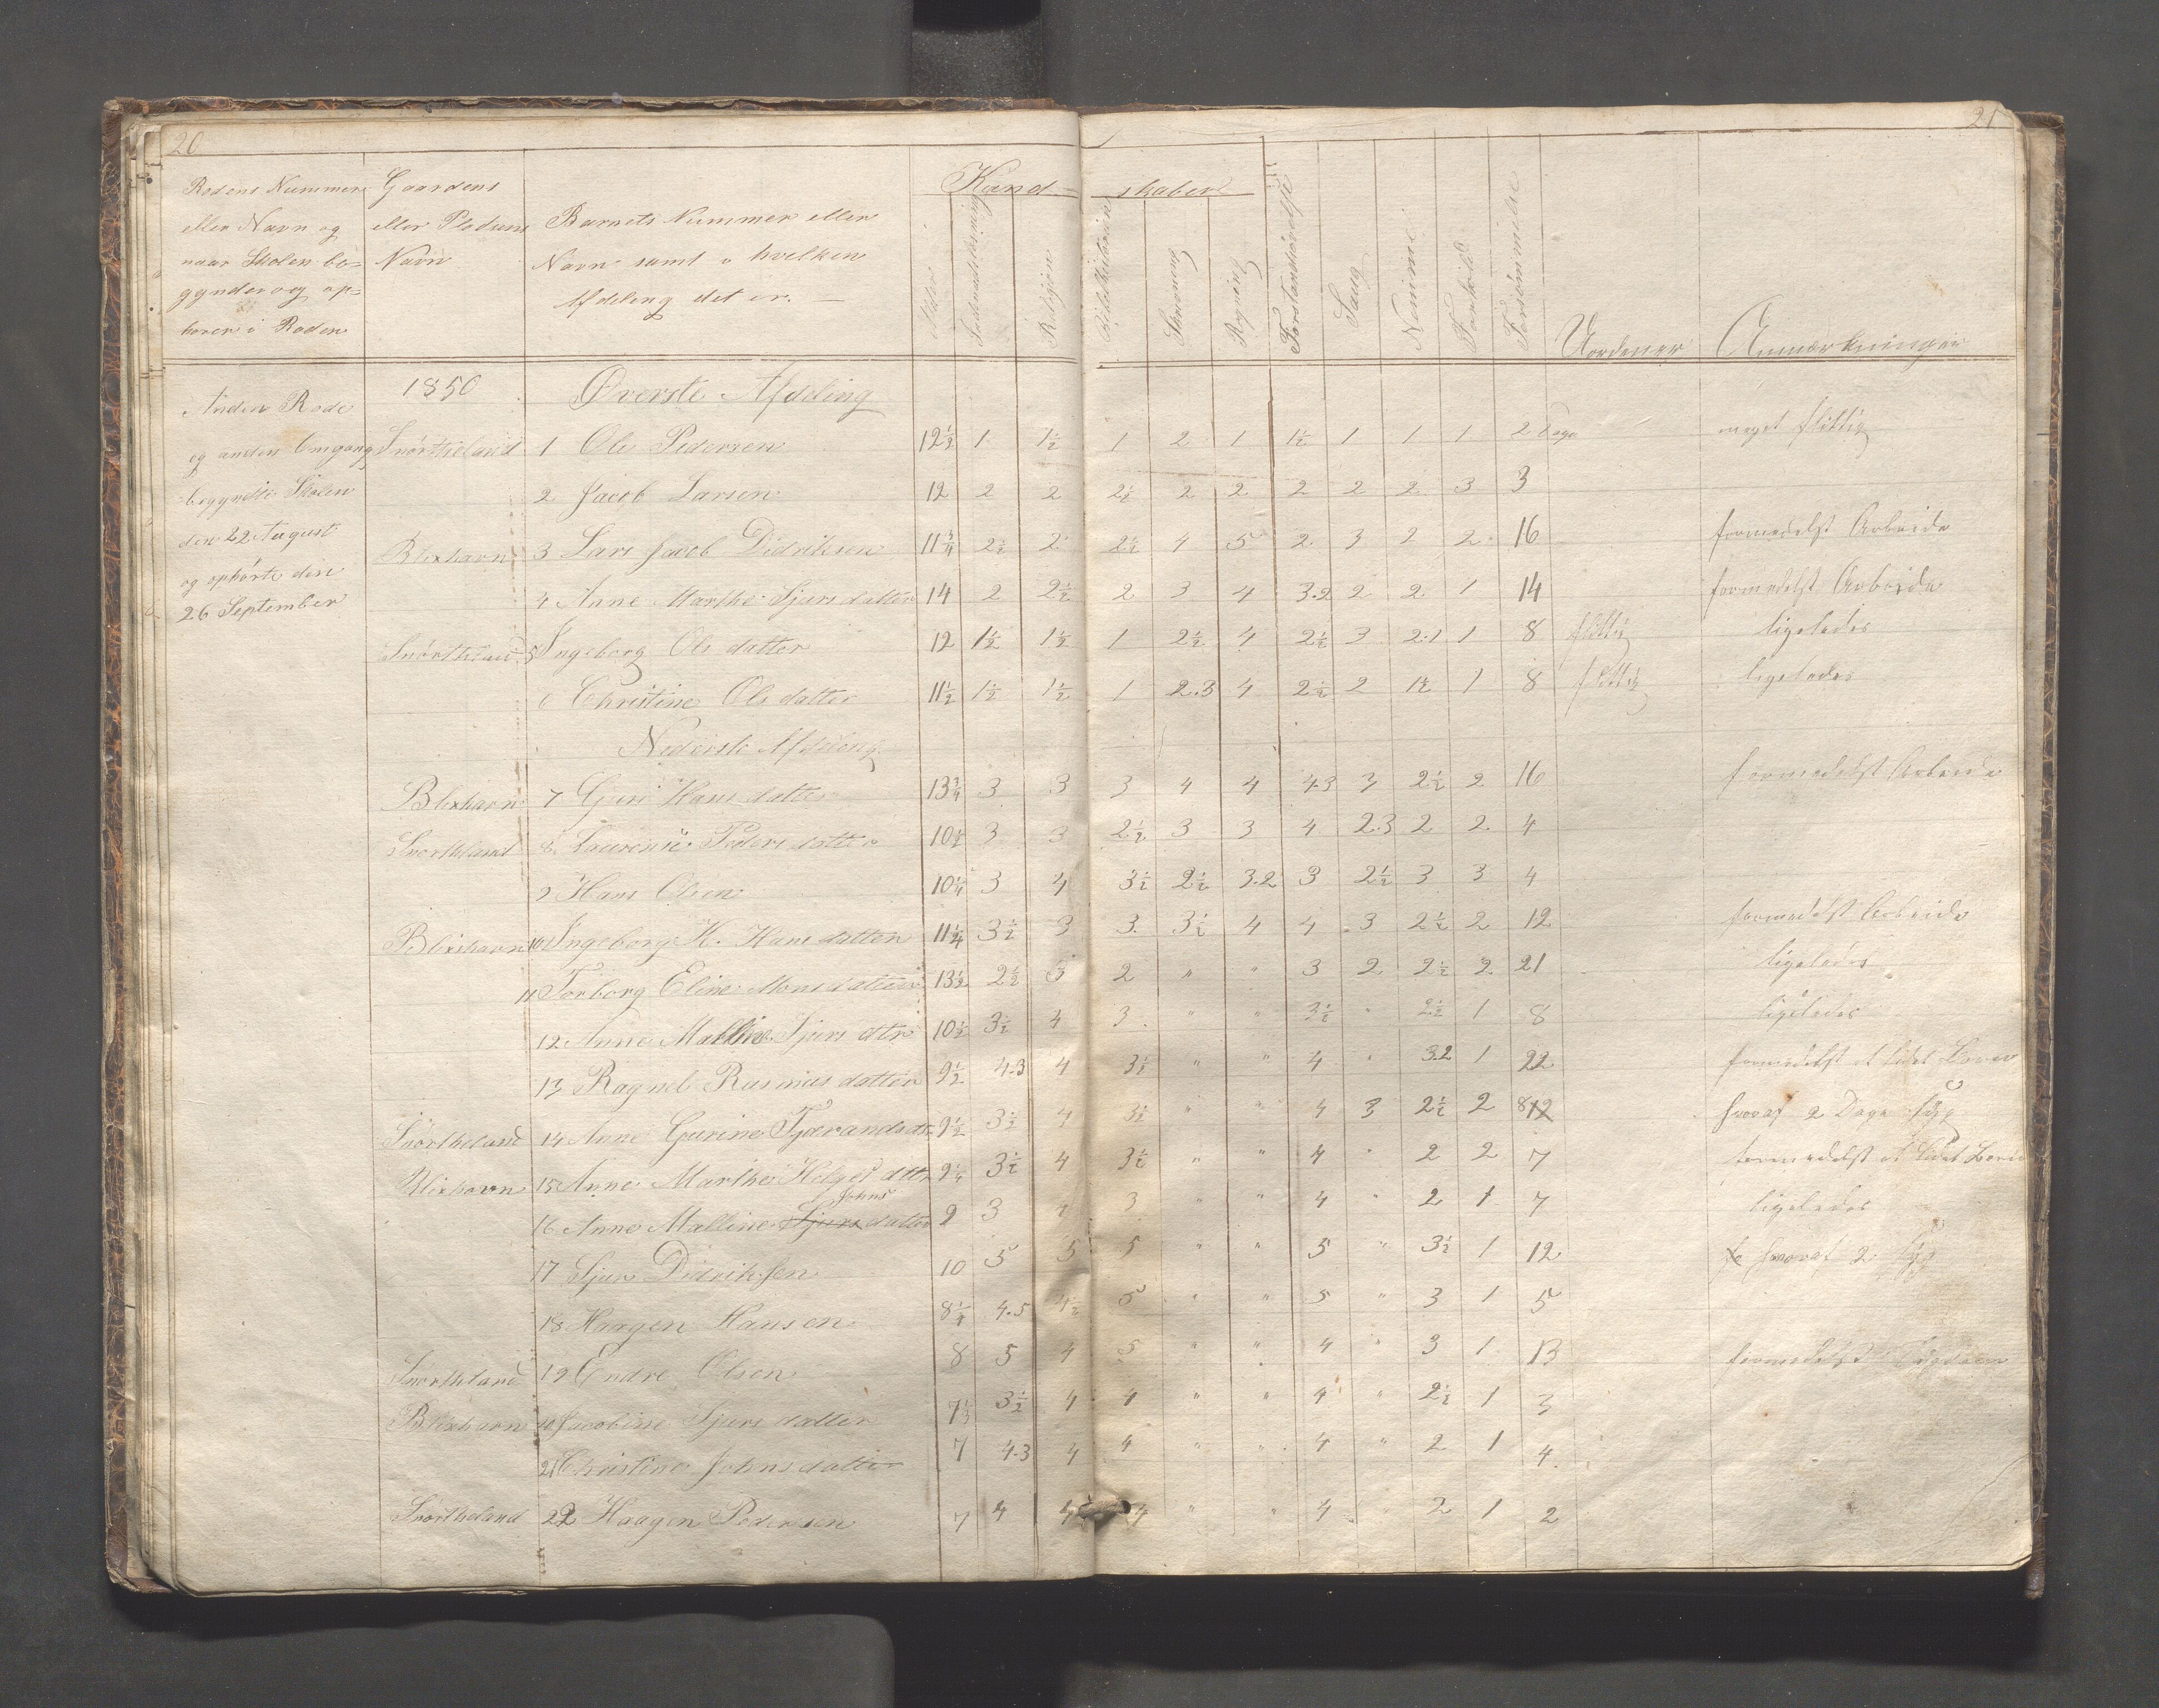 20
21
Rodens Nummer
eller Navn og
naar Skolen be-
gynder og op-
hører i Roden
Gaardens
eller Pladsens
Navn
Barnets Nummer eller
Navn samt i hvilken
Afdeling det er. —
Kund- skaber
Alder
Religjon
Bibelhistorie
Skrivning
Regning
Forstandsøvelse
Sang
Nemme
Forhold
Forsømmelse
Anmærkninger
Anden Rode
og anden Omgang
begyndte Skolen
den 22 August
og ophørte den
26 September
1850 Øverste Afdeling
Snørtheland 1 Ole Pedersen 12½ 1 1½ 1 2 1 1½ 1 1 1 2 Dage meget flittig
2 Jacob Larsen 12 2 2 2½ 2 2 2 2 2 3 3
Blixhavn 3 Lars Jacob Didriksen 11¾ 2½ 2 2½ 4 5 2 3 2 2 16 formedelst Arbeide
4 Anne Marthe Sjursdatter 14 2 2½ 2 3 4 3.2 2 2 1 14 formedelst Arbeide
Snørtheland 5 Ingeborg Olsdatter 12 1½ 1½ 1 2½ 4 2½ 3 2.1 1 8 flittig ligeledes
6 Christine Olsdatter 11½ 1½ 1½ 1 2.3 4 2½ 2 1½ 1 8 flittig ligeledes
Nederste Afdeling
Blixhavn 7 Guri Hansdatter 13¾ 3 3 3 4 4 4.3 3 2½ 2 16 formedelst Arbeide
Snørtheland 8 Laurense Pedersdatter 10½ 3 3 2½ 3 3 4 2.3 2 2 4
9 Hans Olsen 10¼ 3 4 3½ 2½ 3.2 3 2½ 3 3 4
Blixhavn 10 Ingeborg K. Hansdatter 11¼ 3½ 3 3 3½ 4 4 3 2½ 2 12 formedelst Arbeide
11 Torborg Eline Monsdatter 13½ 2½ 3 2 " " 3 2 2½ 2 21 ligeledes
12 Anne Malline Sjurs dtr 10½ 3½ 4 3 " " 3½ " 2½ 1 8 ligeledes
13 Ragnel Rasmusdatter 9½ 4.3 4 3½ " " 4 " 3.2 1 22 formedelst et lidet
Snørtheland 14 Anne Gurine Tjerandsdtr 9½ 3½ 4 3½ " " 4 3 2½ 2 8 12 hvoraf 2 Dage syg
Blixhavn 15 Anne Marthe Helges dttr 9¼ 3½ 4 3½ " " 4 " 2 2 7 formedelst et lidet
Johns
16 Anne Malline Sjursdatter 9 3 4 3 " " 4 " 2 1 7 ligeledes
17 Sjur Didriksen 10 5 5 5 " " 5 " 3½ 1 12 hvoraf 2 syg
18 Haagen Hansen 8¼ 4.5 4½ 5 " " 5 " 3 1 5
Snørtheland 19 Endre Olsen 8 5 4 5 " " 4 " 3 1 13 formedelst
Blixhavn 20 Jacobine Sjursdatter 7½ 3½ 4 4 " " 4 " 2½ 1 3
21 Christine Johnsdatter 7 4.3 4 4 " " 4 " 2 1 4
Snørtheland 22 Haagen Pedersen 7 4 4 4 " " 4 " 2 1 2